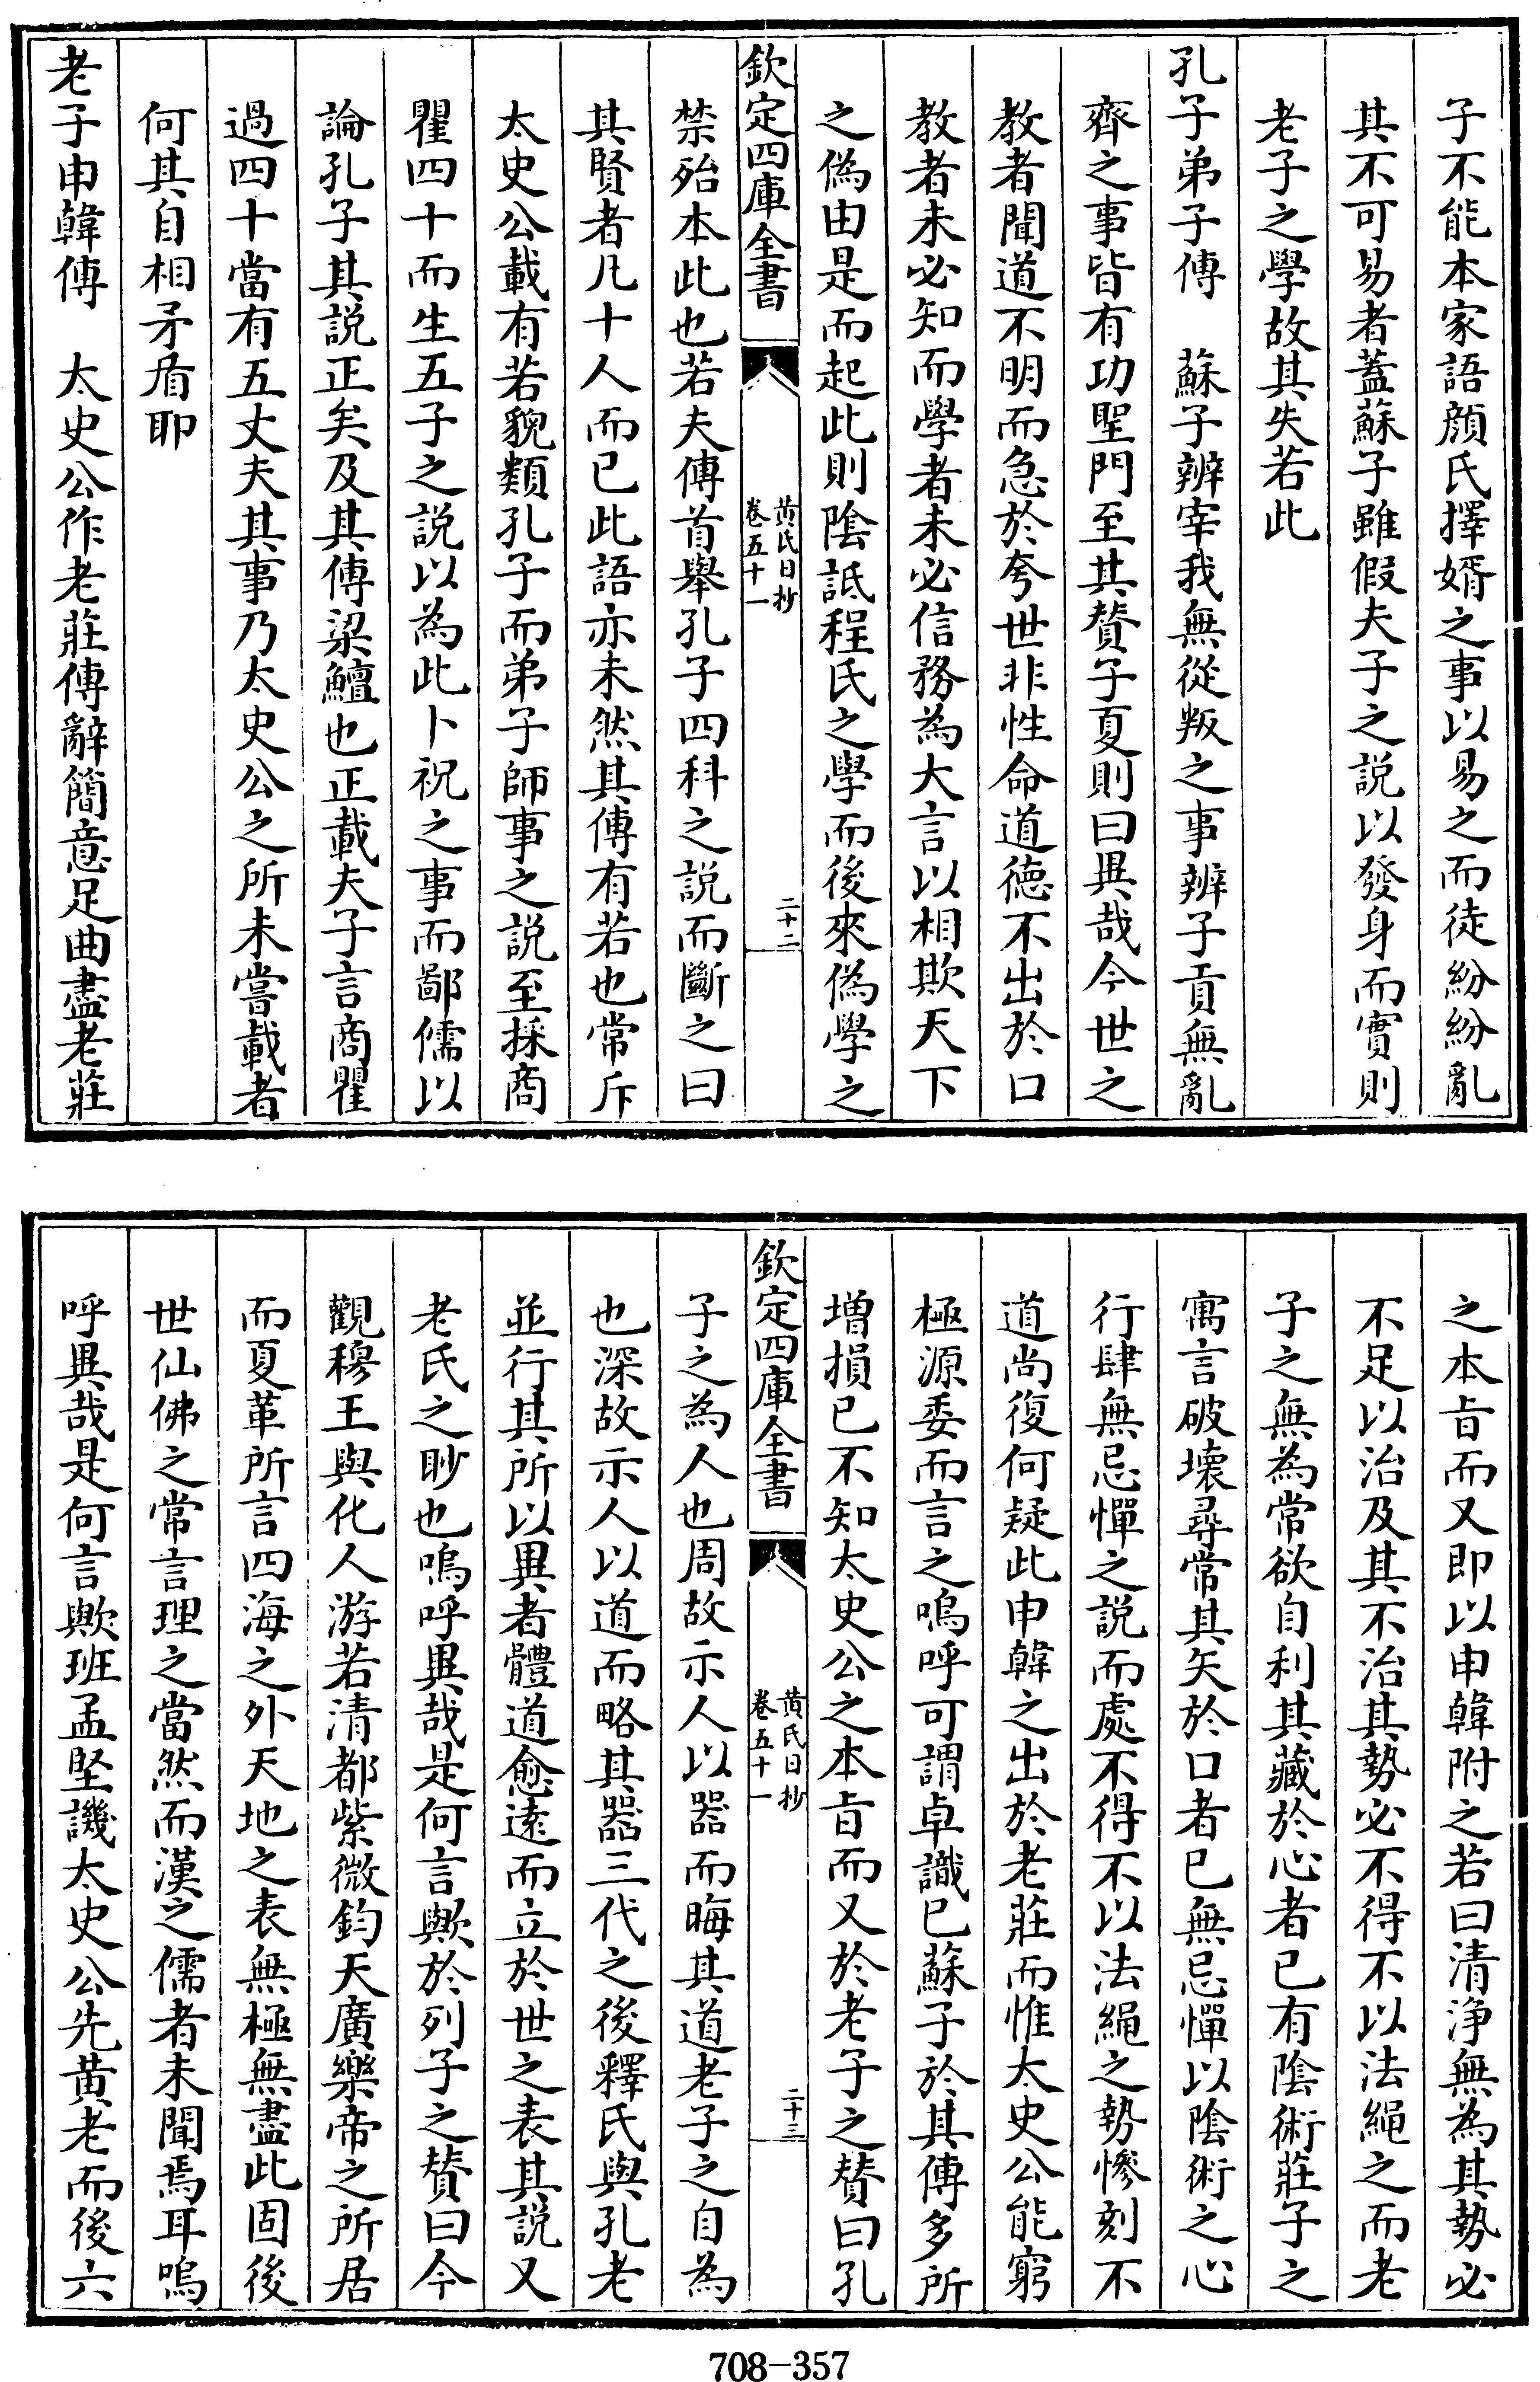 子不能本家語顔氏擇婿之事以易之而徒紛紛亂
其不可易者蓋蘇子雖假夫子之説以發身而實則
老子之學故其失若此
孔子弟子傳　蘇子辨宰我無從叛之事辨子貢無亂
齊之事皆有功聖門至其賛子夏則曰異哉今世之
教者聞道不明而急於夸世非性命道徳不出於口
教者未必知而學者未必信務為大言以相欺天下
之偽由是而起此則隂詆程氏之學而後來偽學之
欽定四庫全書
黄氏日抄
卷五十一
二十二
禁殆本此也若夫傳首舉孔子四科之説而斷之曰
其賢者凡十人而已此語亦未然其傳有若也常斥
太史公載有若貌類孔子而弟子師事之説至採商
瞿四十而生五子之説以為此卜祝之事而鄙儒以
論孔子其説正矣及其傳梁鱣也正載夫子言商瞿
過四十當有五丈夫其事乃太史公之所未嘗載者
何其自相矛盾耶
老子申韓傳　太史公作老莊傳辭簡意足曲盡老莊
之本㫖而又即以申韓附之若曰清浄無為其勢必
不足以治及其不治其勢必不得不以法繩之而老
子之無為常欲自利其藏於心者已有隂術莊子之
寓言破壊尋常其矢於口者已無忌憚以隂術之心
行肆無忌憚之説而處不得不以法繩之勢慘刻不
道尚復何疑此申韓之出於老莊而惟太史公能窮
極源委而言之嗚呼可謂卓識已蘇子於其傳多所
増損已不知太史公之本㫖而又於老子之賛曰孔
欽定四庫全書
黄氏日抄
卷五十一
二十三
子之為人也周故示人以器而晦其道老子之自為
也深故示人以道而略其器三代之後釋氏與孔老
並行其所以異者體道愈逺而立於世之表其説又
老氏之眇也嗚呼異哉是何言歟於列子之賛曰今
觀穆王與化人游若清都紫微鈞天廣樂帝之所居
而夏革所言四海之外天地之表無極無盡此固後
世仙佛之常言理之當然而漢之儒者未聞焉耳嗚
呼異哉是何言歟班孟堅譏太史公先黄老而後六
708-357